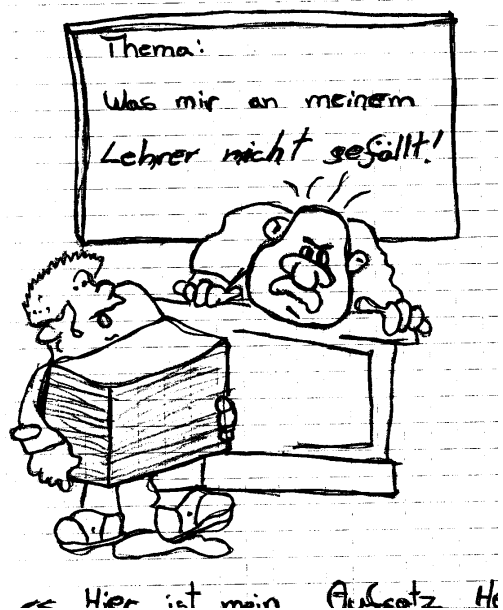 Thema:
Was mir an meinem
Lehrer nicht gefällt!
Hier ist mein Aufsatz